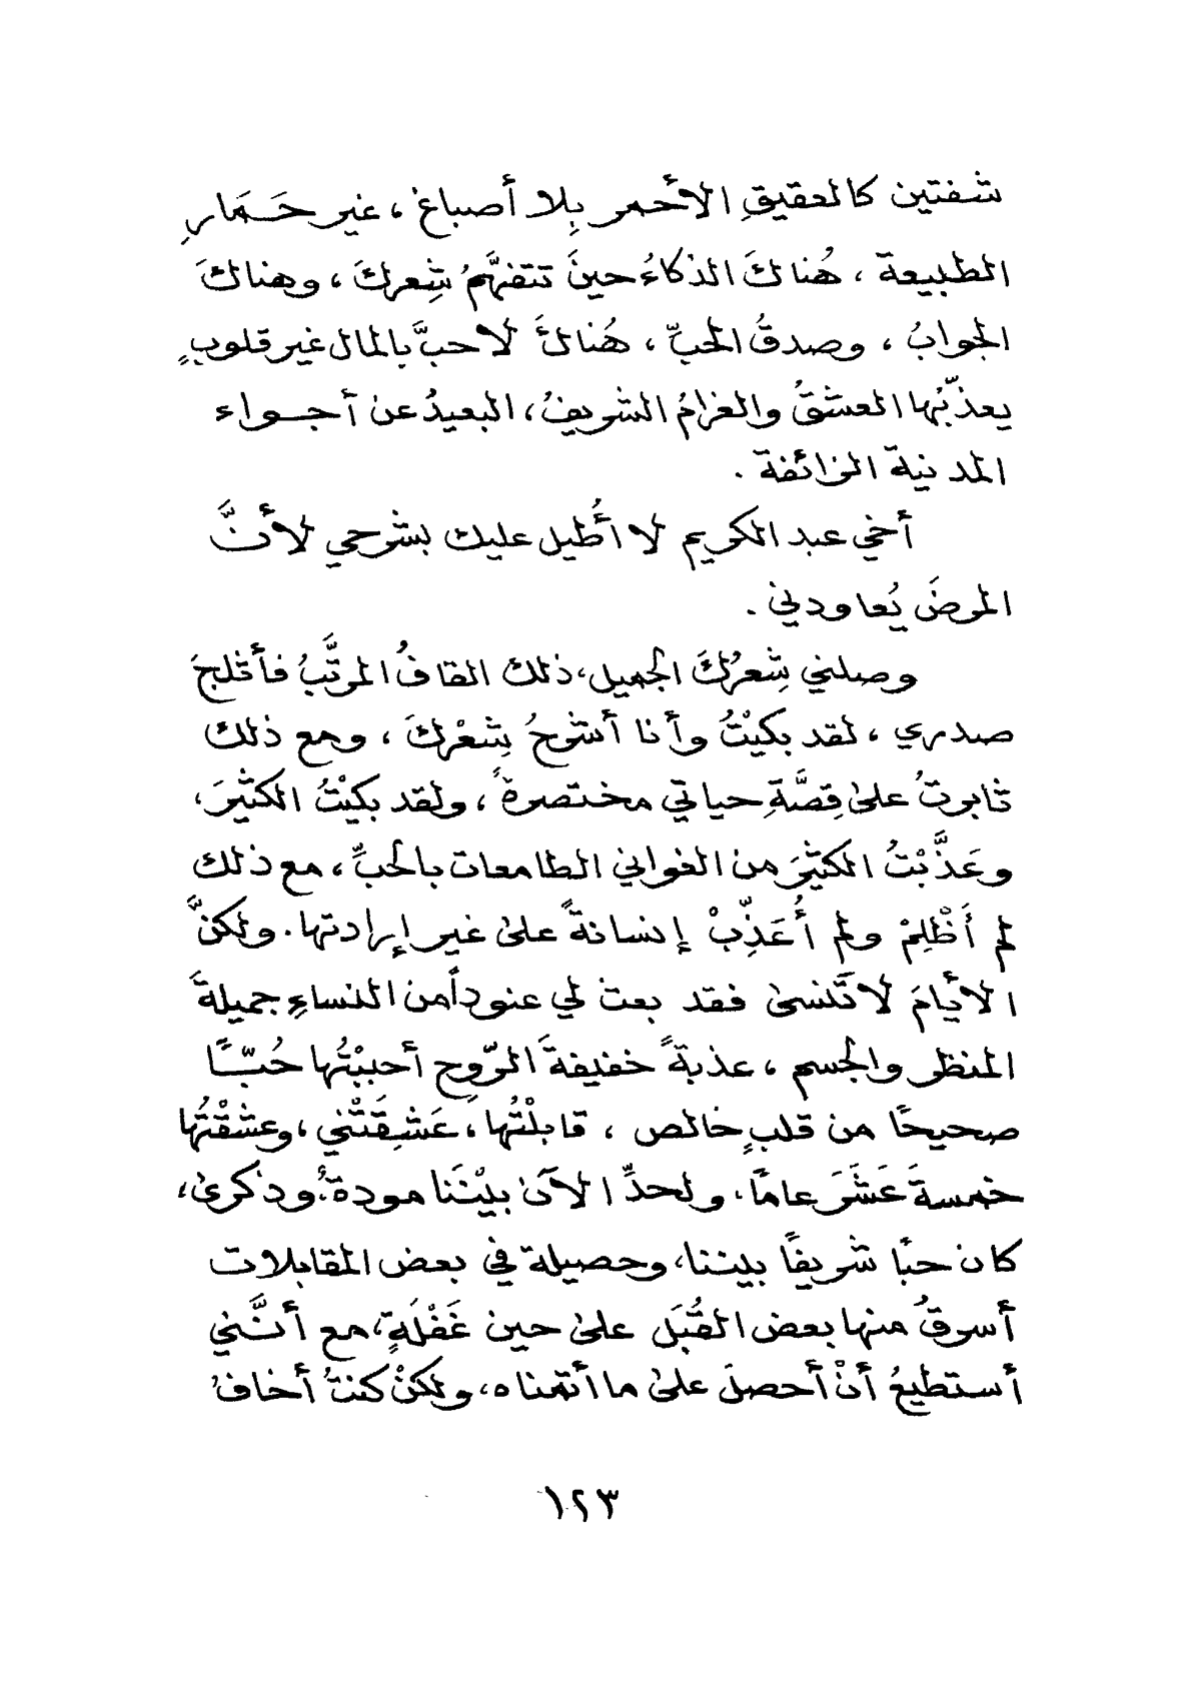 شفتين كالعقيقِ الأحمر بِلا أصباغ ، غير حَمَارِ
الطبيعة ، هُناكَ الذكاءُ حينَ تتفهَّمُ شِعركَ ، وهناكَ
الجوابُ ، وصدقُ الحبِّ ، هُناكَ لا حبَّ بالمال غير قلوبٍ
يعذّبُها العشقُ والغرامُ الشريفُ ، البعيدُ عن أجواء
المدنية الزائفة .
أخي عبد الكريم لا أُطيل عليك بشرحي لأنَّ
المرضَ يُعاودني .
وصلني شِعرُكَ الجميل ، ذلك القافُ المرتَّبُ فأثلجَ
صدري ، لقد بكيْتُ وأنا أشرحُ شِعْركَ ، ومع ذلك
ثابرتُ على قِصَّةِ حياتي مختصرةً ، ولقد بكيْتُ الكثيرَ ،
وعَذَّبْتُ الكثيرَ من الغواني الطامعات بالحبِّ ، مع ذلك
لم أَظْلِمْ ولم أُعَذِّبْ إنسانةً على غير إرادتها . ولكنَّ
الأيامَ لا تَنسى فقد بعث لي عنوداً من النساءِ جميلةَ
المنظر والجسم ، عذبةً خفيفةَ الرّوحِ أحببْتُها حُبّاً
صحيحًا من قلبٍ خالص ، قابلْتُها ، عَشِقَتْني ، وعشقْتُها
خمسةَ عَشَرَ عامًا ، ولحدِّ الآن بيْنَنا مودةٌ ، وذكرى ،
كان حبًا شريفًا بيننا ، وحصيلة في بعض المقابلات
أسرقُ منها بعض القُبَل على حين غَفْلَةٍ ، مع أنَّني
أستطيعُ أنْ أحصلَ على ما أتمناه ، ولكنْ كنتُ أخافُ
١٢٣